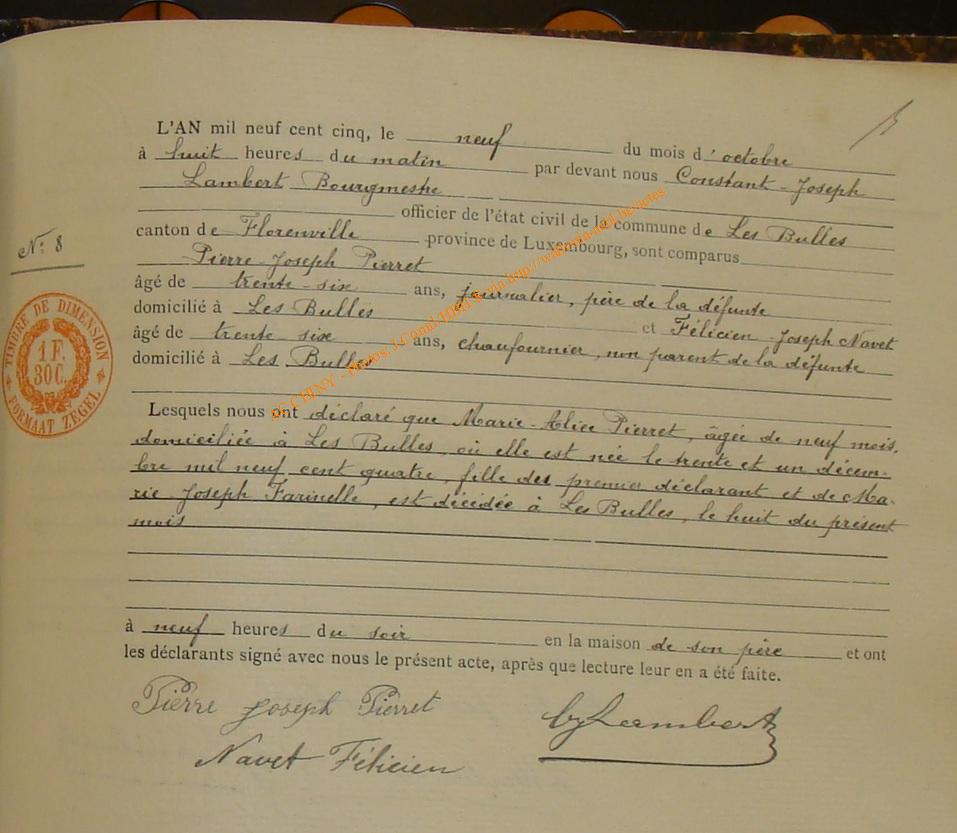 L'AN mil neuf cent cinq, le neuf du mois d'octobre
à huit heures du matin par devant nous Constant-Joseph
Lambert Bourgmestre
officier de l'état civil de la commune de Les Bulles
N° 8
canton de Florenville province de Luxembourg, sont comparus
Pierre-Joseph Pierret
âgé de trente-six ans, journalier, père de la défunte
domicilié à Les Bulles et Félicien-Joseph Navet
âgé de trente six ans, chaufournier, non parent de la défunte
domicilié à Les Bulles
TIMBRE DE DIMENSION
1 F.
30 C.
FORMAAT ZEGEL
Lesquels nous ont déclaré que Marie-Alice Pierret, âgée de neuf mois,
domiciliée à Les Bulles, où elle est née le trente et un décem-
bre mil neuf cent quatre, fille des premier déclarant et de Ma-
rie-Joseph Farinelle, est décédée à Les Bulles, le huit du présent
mois
à neuf heures du soir en la maison de son père et ont
les déclarants signé avec nous le présent acte, après que lecture leur en a été faite.
Pierre Joseph Pierret
Lambert
Navet Félicien